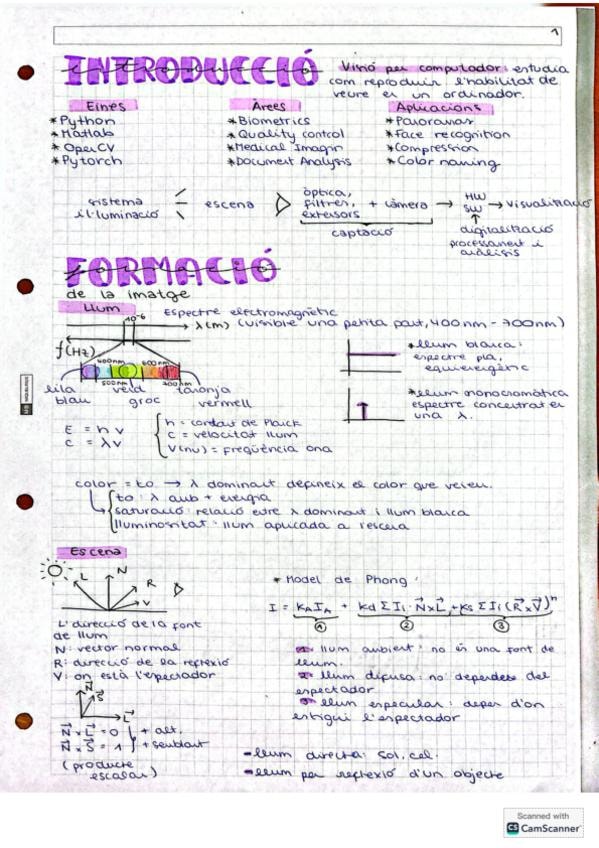 1
INTRODUCCIÓ
Visió per computador: estudia
com reproduir l'habilitat de
veure en un ordinador.
Eines
* Python
* Matlab
* OpenCV
* Pytorch
Àrees
* Biometrics
* Quality control
* Medical Imagin
* Document Analysis
Aplicacions
* Panoramas
* Face recognition
* Compression
* Color naming
sistema
il·luminació
escena
òptica,
filtres,
extensors
+ càmera → HW
SW → visualització
captació
digitalització
processament i
anàlisis
FORMACIÓ
de la imatge
Llum
Espectre electromagnètic
10^-6
λ(m) (visible una petita part, 400nm - 700nm)
f(Hz)
400nm 600nm
500nm 700nm
lila verd taronja
blau groc vermell
* llum blanca:
espectre pla,
equienergètic
* llum monocromàtica
espectre concentrat en
una λ.
E = h ν
c = λν
h = constant de Planck
c = velocitat llum
V(nu) = freqüència ona
color = to → λ dominant defineix el color que veiem.
to: λ amb + energia
saturació: relació entre λ dominant i llum blanca
lluminositat: llum aplicada a l'escena
Escena
L N R V
L: direcció de la font
de llum
N: vector normal
R: direcció de la reflexió
V: on està l'espectador
N S L
N x L = 0 + alt.
N x S = 1 + semblant
(producte
escalar)
* Model de Phong:
I = KA IA + Kd Σ Ii · N x L + Ks Σ Ii (R x V)^n
1 2 3
1- llum ambient: no és una font de
llum.
2- llum difusa: no dependes del
espectador
3- llum especular: depen d'on
estigui l'espectador
- llum directa: sol, cel.
- llum per reflexió d'un objecte
Scanned with
CS CamScanner